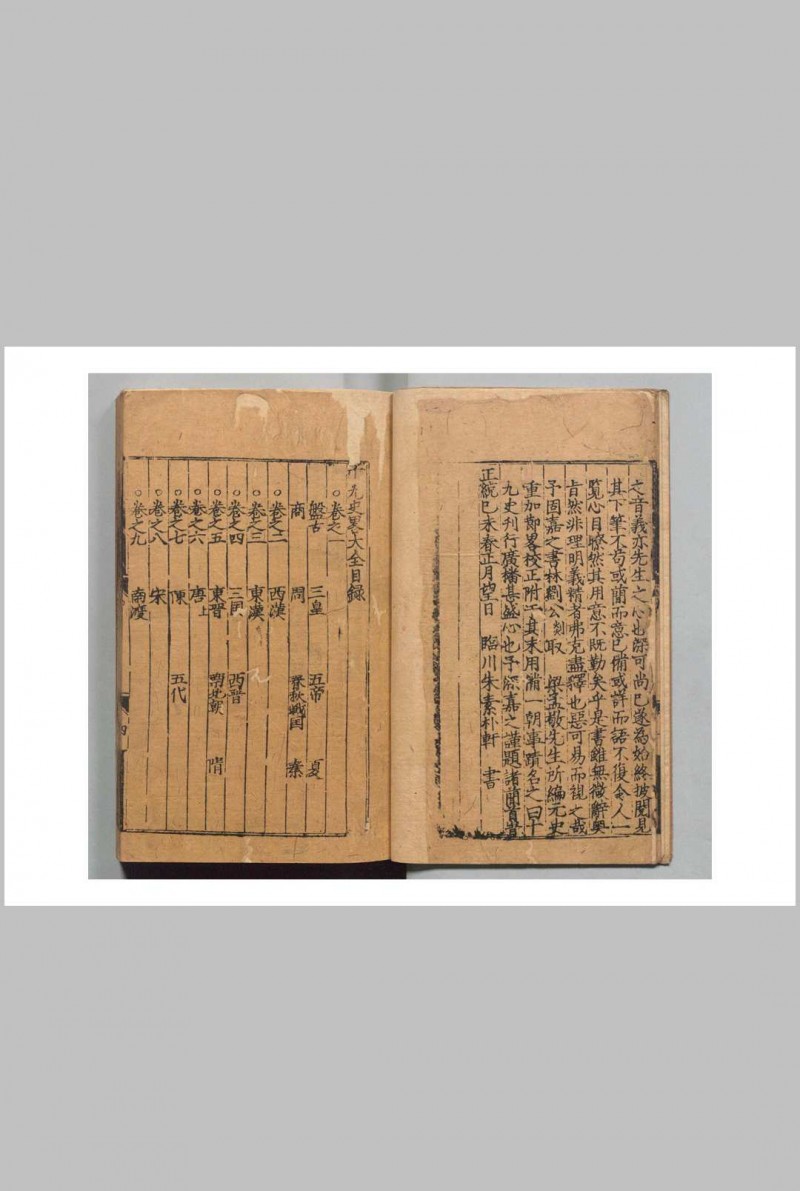 之音義亦先生之心也深可尚已遂為始終披閱見
其下筆不苟或簡而意已備或詳而語不復令人一
覧心目瞭然其用意不既勤矣乎是書雖無微辭奥
㫖然非理明義精者弗克盡繹也惡可易而視之哉
予固嘉之書林劉公剡取梁孟敬先生所編元史
重加節畧校正附工其末用備一朝事蹟名之曰十
九史刊行廣播甚盛心也予深嘉之謹題諸簡首旹
正統己未春正月望日 臨川朱素朴軒 書
十九史畧大全目録
○卷之一
盤古 三皇 五帝 夏
商 周 春秋戰国 秦
○卷之二 西漢
○卷之三 東漢
○卷之四 三国 西晉
○卷之五 東晉 南北朝 隋
○卷之六 唐上
○卷之七 陳 五代
○卷之八 宋
○卷之九 南渡